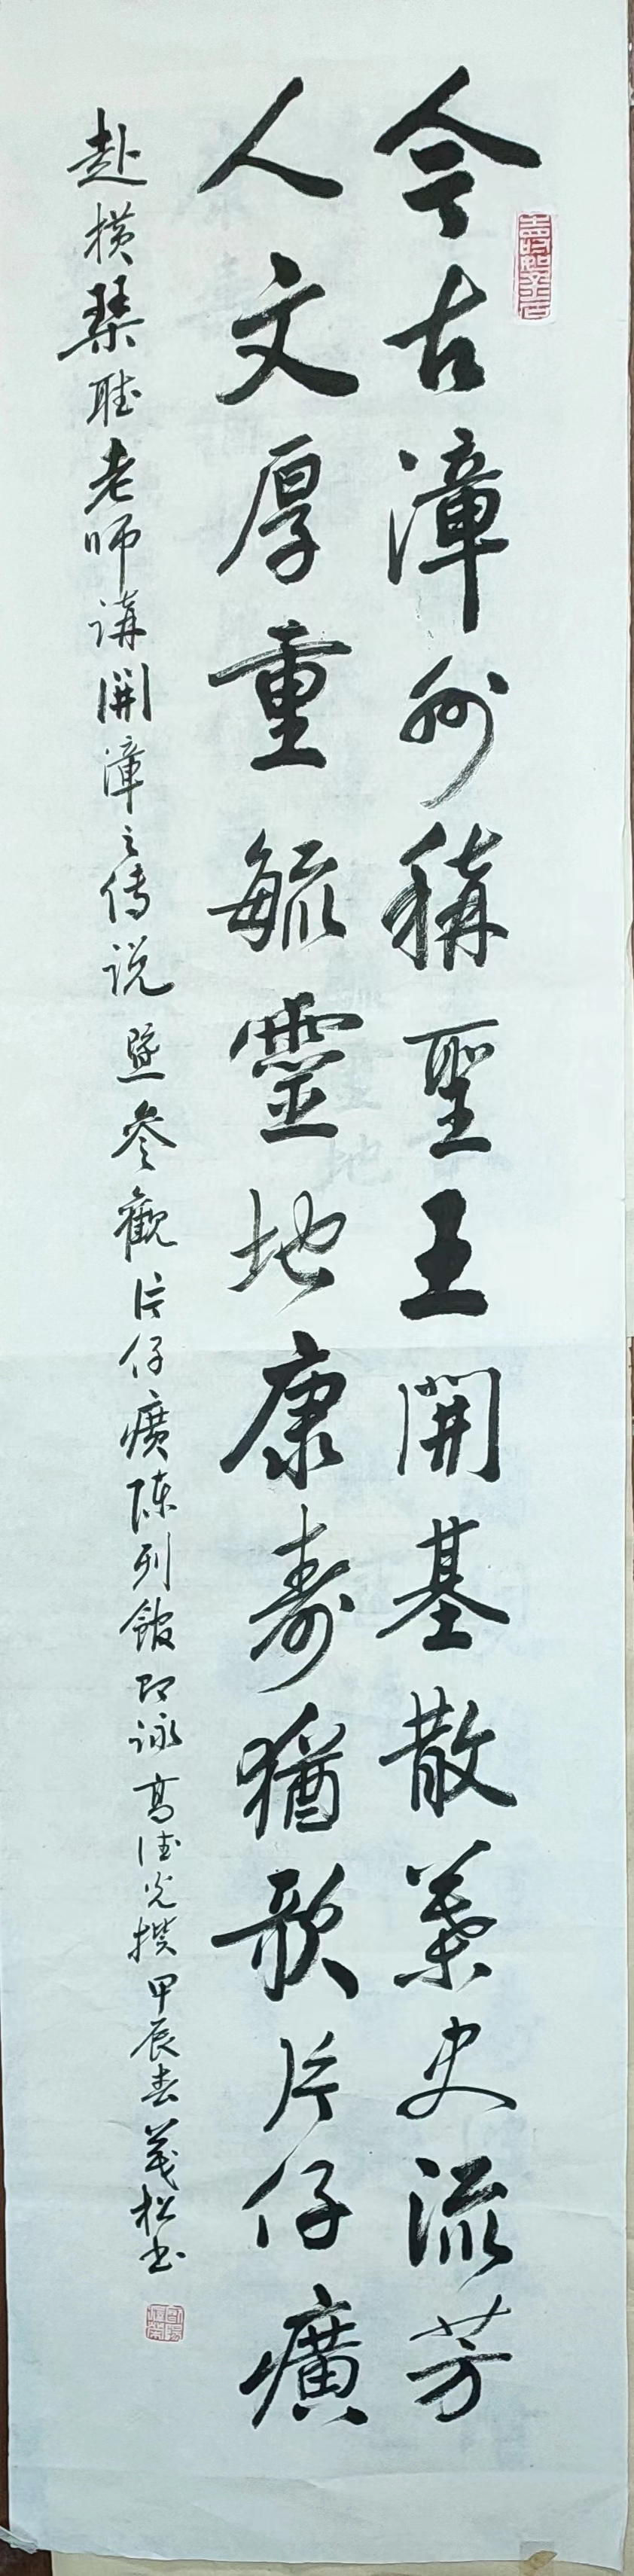 今古漳州稱聖王開基散葉史流芳
人文厚重毓靈地康壽猶歌片仔癀
赴橫琴聽老師講開漳之傳说暨參觀片仔癀陳列館即詠高德光撰甲辰春義松书